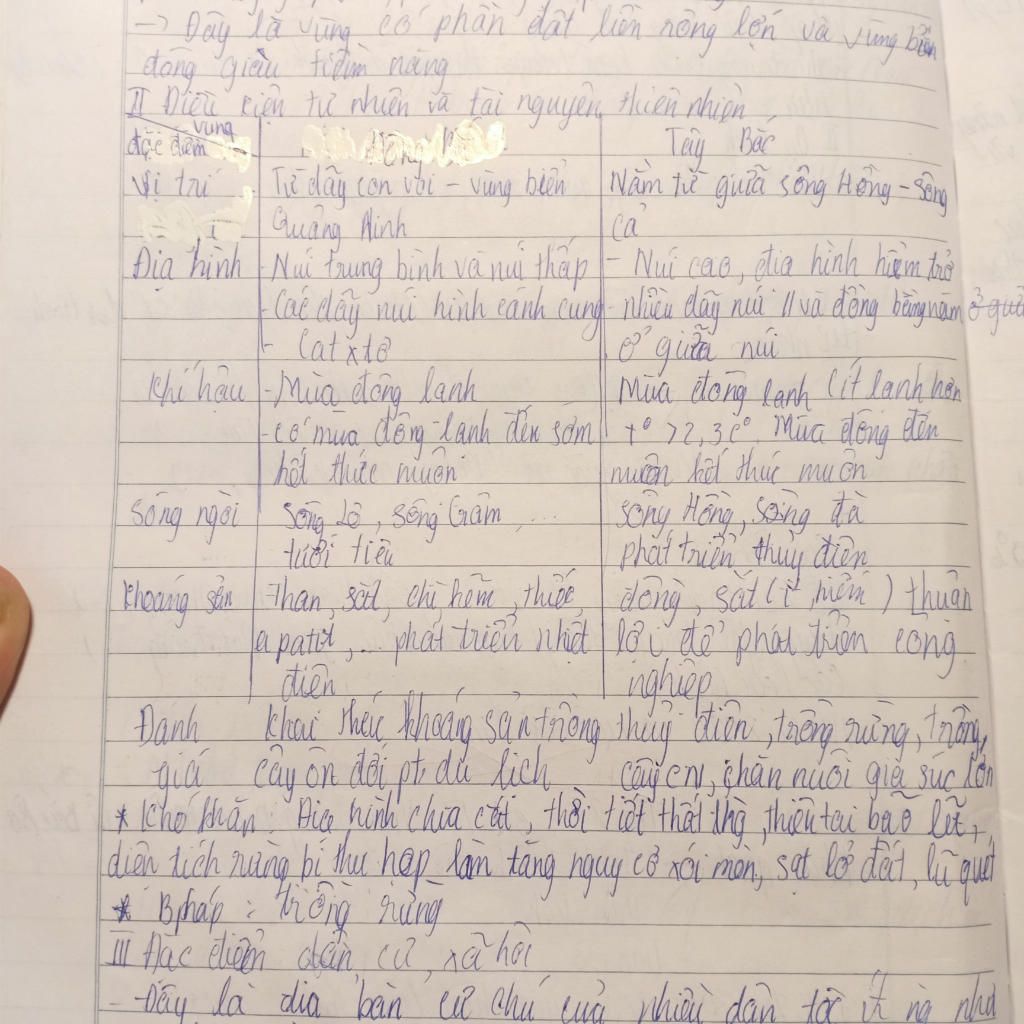 → Đây là vùng có phần đất liền rộng lớn và vùng biển
đông giàu tiềm năng
II Điều kiện tự nhiên và tài nguyên thiên nhiên
vùng
đặc điểm Đông Tây Bắc
Vị trí Từ dãy con voi – vùng biển Nằm từ giữa sông Hồng – sông
Quảng Ninh Cả
Địa hình - Núi trung bình và núi thấp - Núi cao, địa hình hiểm trở
- Các dãy núi hình cánh cung - nhiều dãy núi // và đồng bằng nằm ở giữa
- Catxtơ ở giữa núi
Khí hậu - Mùa đông lạnh Mùa đông lạnh (ít lạnh hơn
- có mùa đông lạnh đến sớm t° >2,3c°. Mùa đông đến
kết thúc muộn muộn kết thúc muộn
Sông ngòi Sông Lô, sông Gâm ... sông Hồng, sông đà
tưới tiêu phát triển thủy điện
Khoáng sản than, sắt, chì kẽm, thiếc, đồng, sắt (ít, hiếm) thuận
apatit, ... phát triển nhiệt lợi để phát triển công
điện nghiệp
Đánh khai thác khoáng sản trồng thuỷ điện, trồng rừng, trồng,
giá cây ôn đới, pt, du lịch cây CN, chăn nuôi gia súc lớn
* Khó khăn: Địa hình chia cắt, thời tiết thất thg, thiên tai bão lũ,
diện tích rừng bị thu hẹp làm tăng nguy cơ xói mòn, sạt lở đất, lũ quét
* B.pháp: trồng rừng
III Đặc điểm dân cư, xã hội
- Đây là địa bàn cư chú của nhiều dân tộc ít ng như